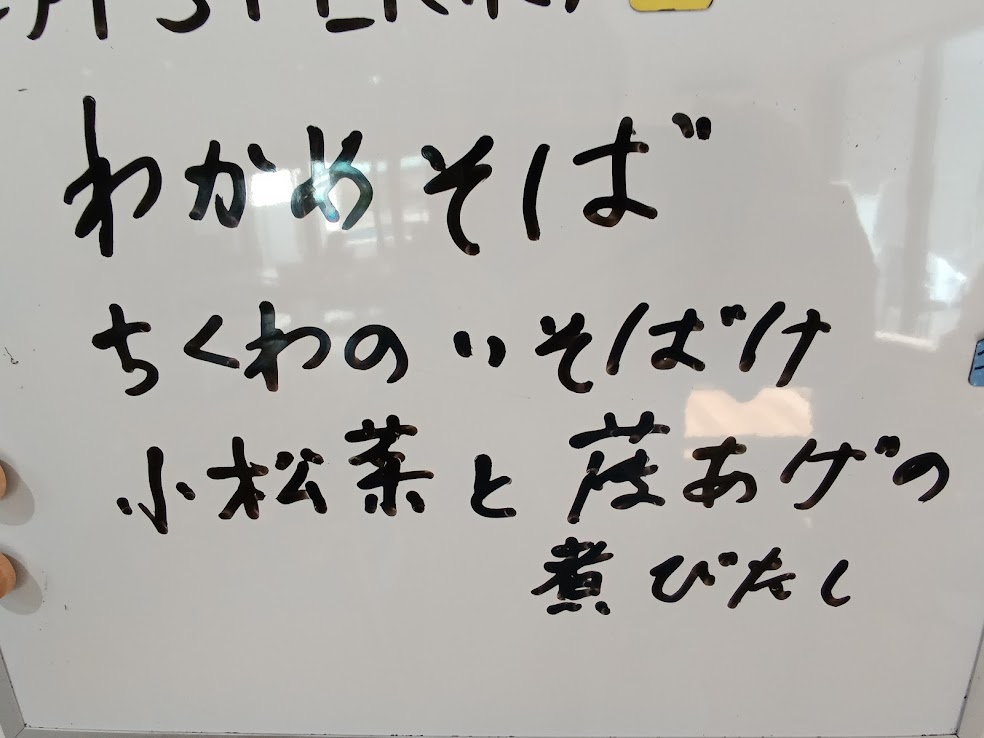 わかめそば
ちくわのいそばけ
小松菜とあげの
煮びたし